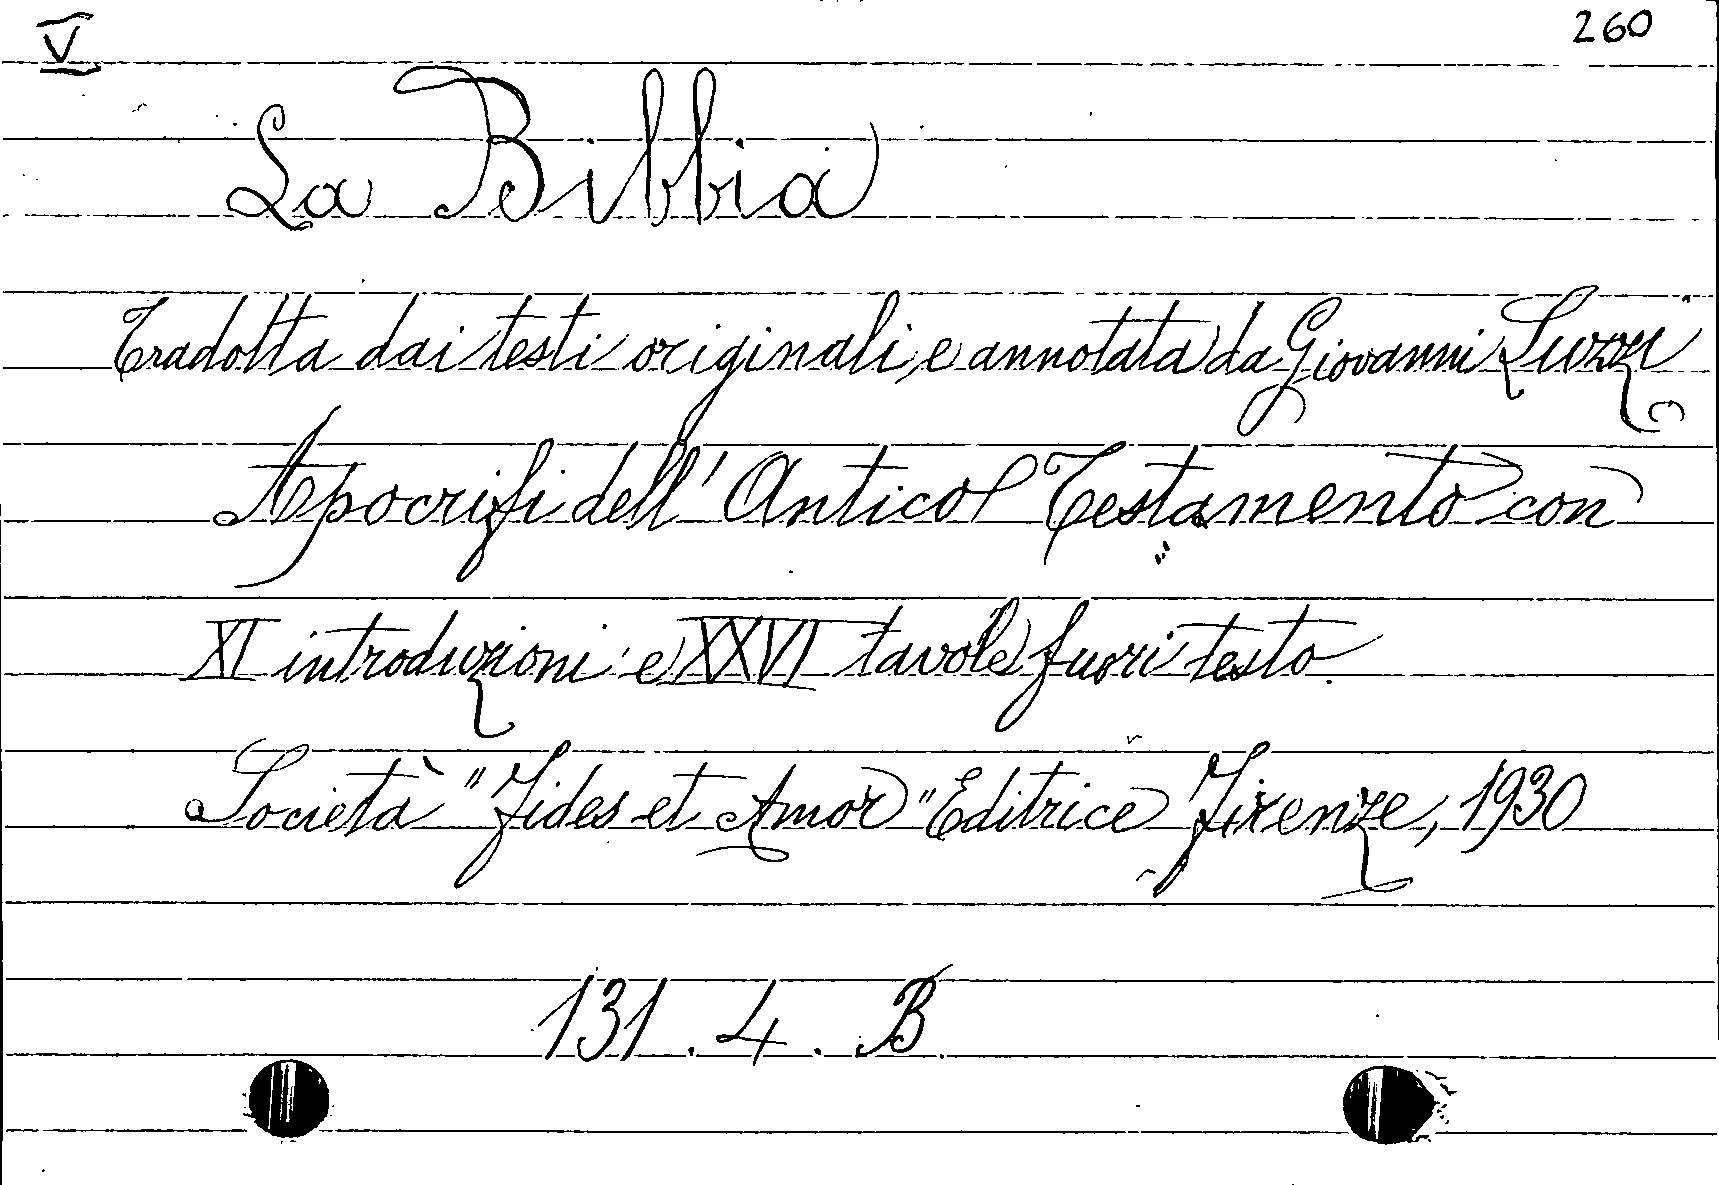 V
260
La Bibbia
Tradotta dai testi originali, e annotata da Giovanni Luzzi
Apocrifi dell' Antico Testamento con
XI introduzioni e XXVI tavole fuori testo.
Società "Fides et Amor" Editrice Firenze, 1930
131. 4. B.